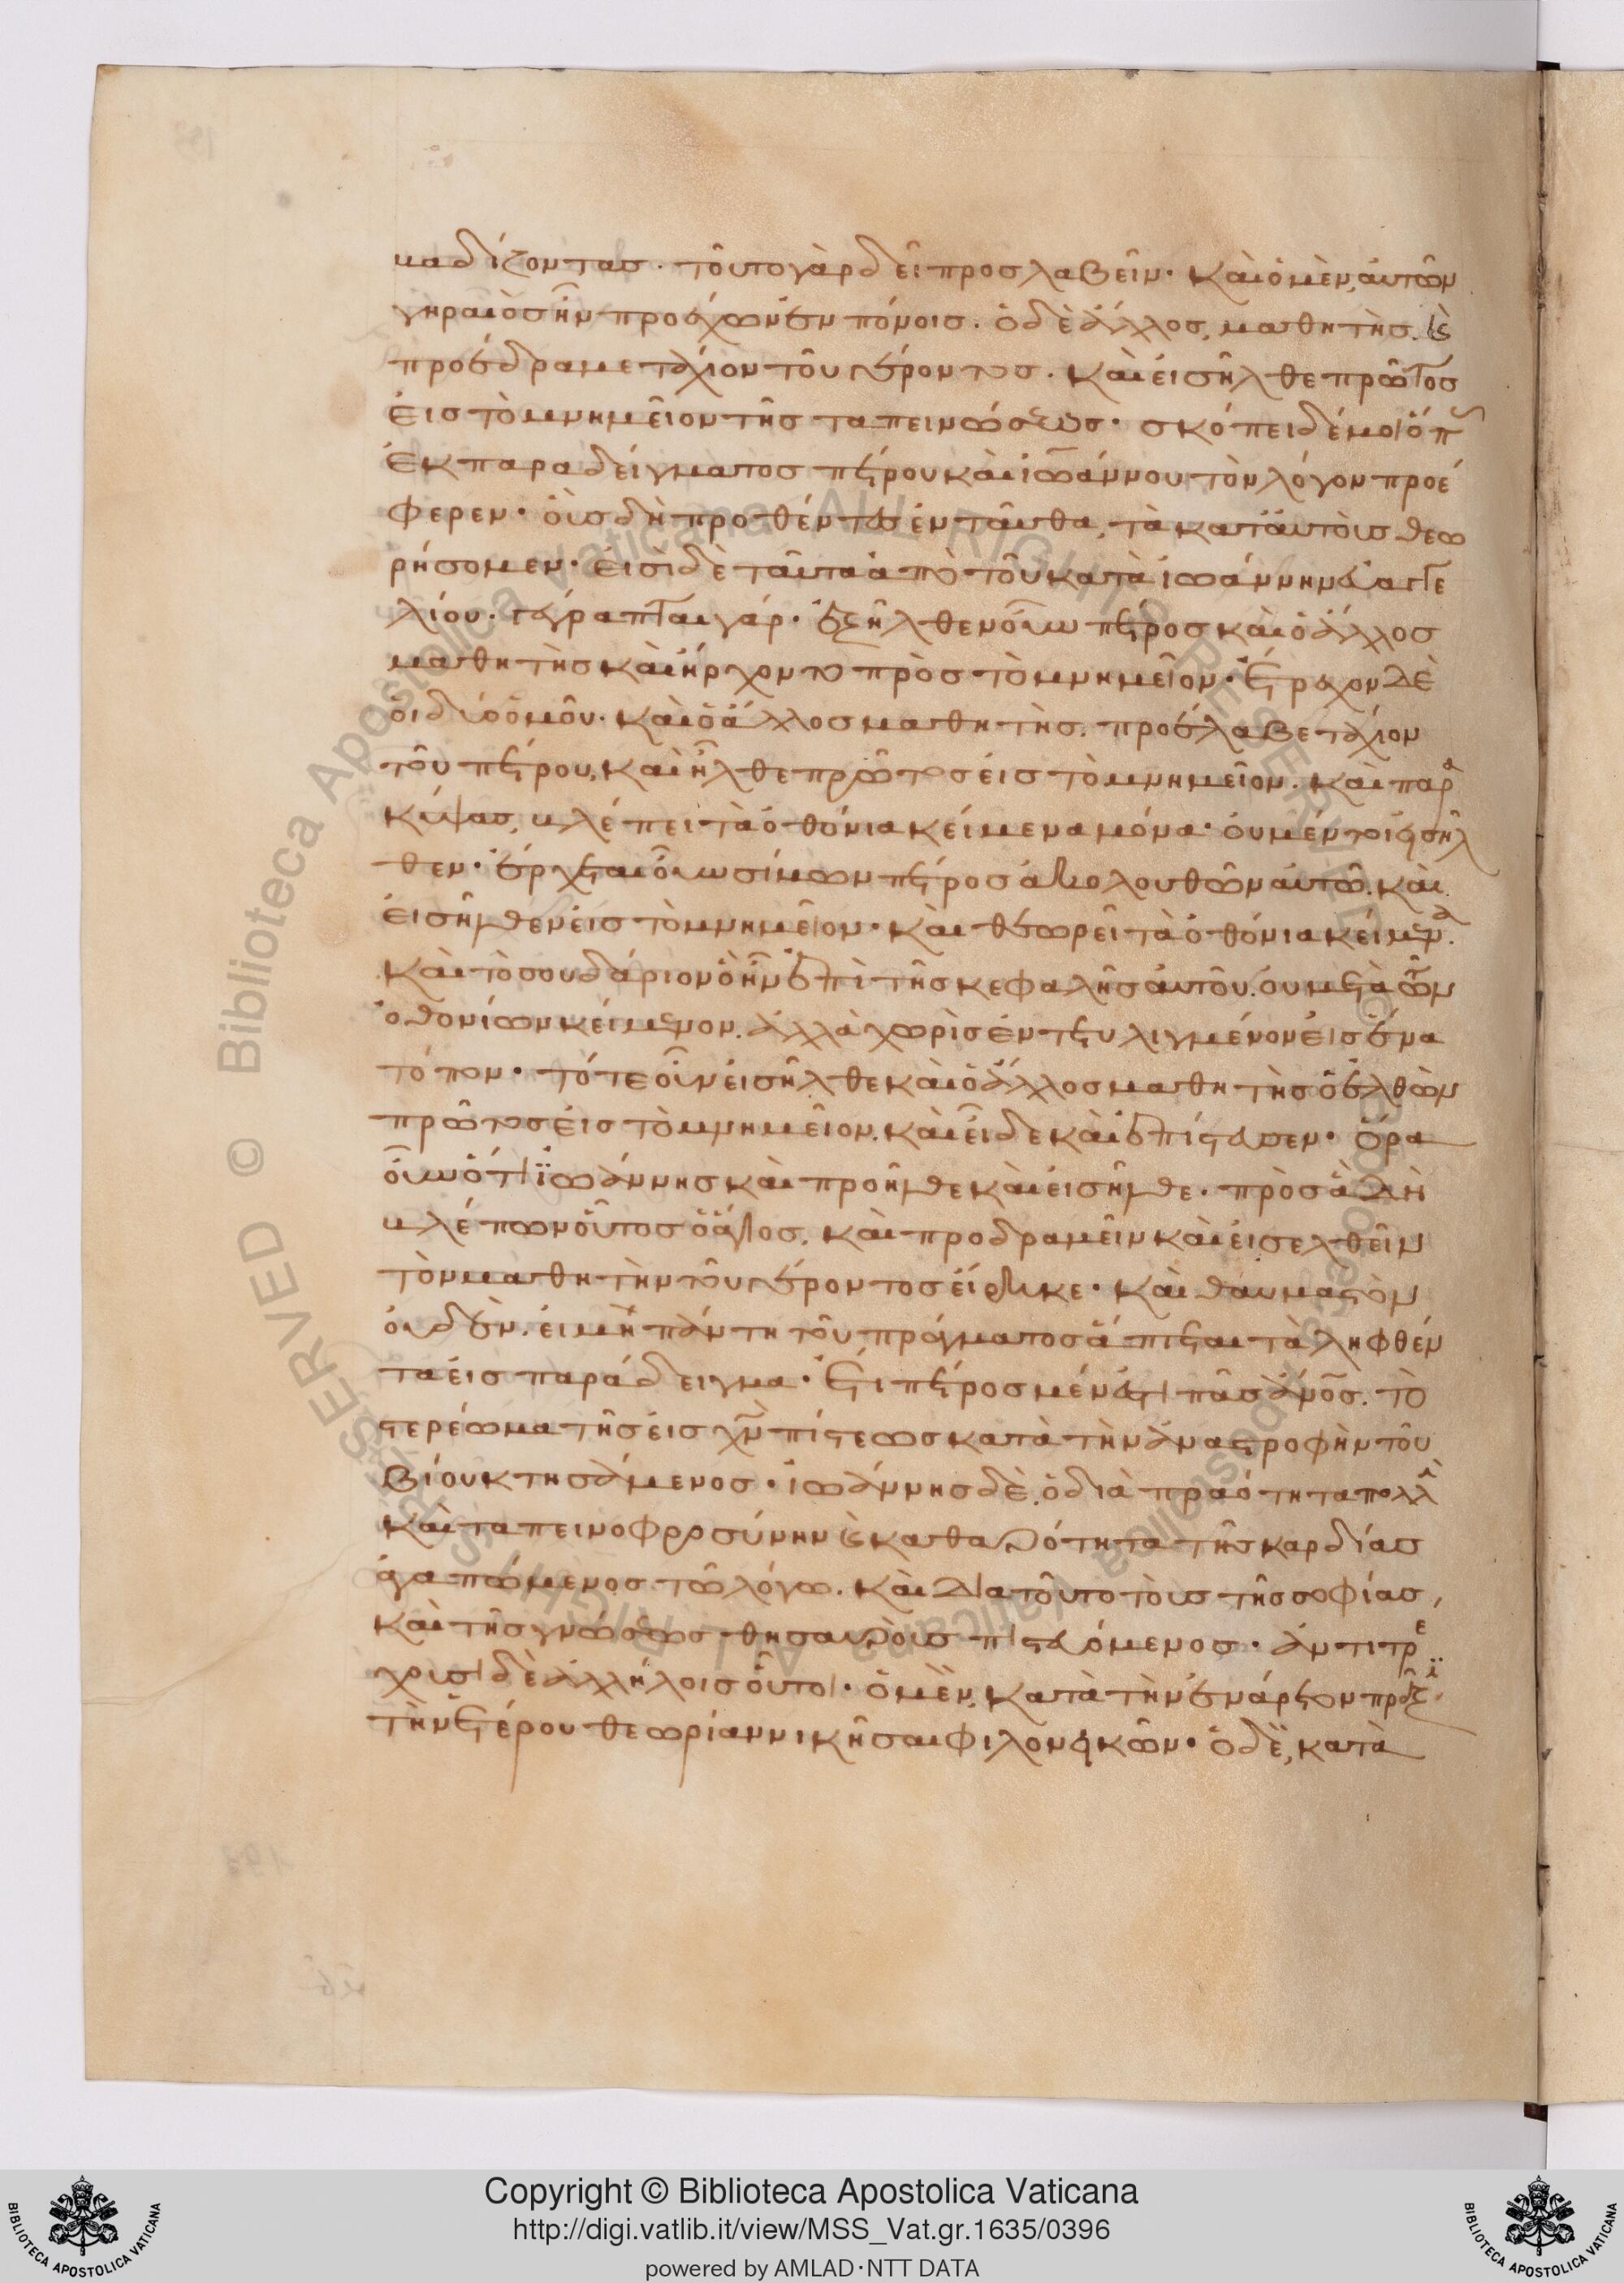 βαδίζοντας. τοῦτο γὰρ δεῖ προσλαβεῖν· καὶ ὁ μὲν, αὐτῶν
γηραιὸς ἦν προσέχων ἐν πόνοις. ὁ δὲ ἄλλος, μαθητὴς. καὶ
προέδραμε τάχιον τοῦ γέροντος. καὶ εἰσῆλθε πρῶτος
εἰς τὸ μνημεῖον τῆς ταπεινώσεως· σκόπει δέ μοι ὅπ
ἐκ παραδείγματος πέτρου καὶ ἰωάννου τὸν λόγον προέ
φερεν· οἷς δὴ προθέντες ἐνταῦθα, τὰ κατ' αὐτοὺς θεω
ρήσομεν· εἰσὶ δὲ ταῦτα ἀπὸ τοῦ κατὰ ἰωάννην εὐαγγε
λίου· γέγραπται γάρ· ἐξῆλθεν οὖν ὁ πέτρος καὶ ὁ ἄλλος
μαθητὴς καὶ ἤρχοντο πρὸς τὸ μνημεῖον· ἔτρεχον δὲ
οἱ δύο ὁμοῦ· καὶ ὁ ἄλλος μαθητὴς. προέλαβε τάχιον
τοῦ πέτρου, καὶ ἦλθε πρῶτος εἰς τὸ μνημεῖον. καὶ παρα
κύψας, βλέπει τὰ ὀθόνια κείμενα μόνα· οὐ μέντοι εἰσῆλ
θεν· ἔρχεται οὖν σίμων πέτρος ἀκολουθῶν αὐτῷ. καὶ
εἰσῆλθεν εἰς τὸ μνημεῖον· καὶ θεωρεῖ τὰ ὀθόνια κείμενα.
καὶ τὸ σουδάριον ὃ ἦν ἐπὶ τῆς κεφαλῆς αὐτοῦ. οὐ μετὰ τῶν
ὀθονίων κείμενον. ἀλλὰ χωρὶς ἐντετυλιγμένον εἰς ἕνα
τόπον· τότε οὖν εἰσῆλθε καὶ ὁ ἄλλος μαθητὴς ὁ ἐλθὼν
πρῶτος εἰς τὸ μνημεῖον. καὶ εἶδε καὶ ἐπίστευσεν· ὅρα
οὖν ὅτι ἰωάννης καὶ προῆλθε καὶ εἰσῆλθε· πρὸς ἃ δὴ
βλέπων οὗτος ὁ ἅγιος. καὶ προδραμεῖν καὶ εἰσελθεῖν
τὸν μαθητὴν τοῦ γέροντος εἴρηκε· καὶ θαυμαστὸν
οὐδὲν. εἰ μὴ πάντη τοῦ πράγματος ἅπτεται τὰ ληφθέν
τα εἰς παράδειγμα· ἔτι πέτρος μέν ἐστι πᾶς ἄνος. τὸ
στερέωμα τῆς εἰς χν πίστεως κατὰ τὴν ἀναστροφὴν τοῦ
βίου κτησάμενος· ἰωάννης δὲ. ὁ διὰ πραότητα πολλὴν
καὶ ταπεινοφροσύνην καὶ καθαρότητα τῆς καρδίας
ἀγαπώμενος τῷ λόγῳ. καὶ διὰ τοῦτο τοὺς τῆς σοφίας,
καὶ τῆς γνώσεως θησαυροὺς πιστευόμενος· ἀντιτρέ
χουσι δὲ ἀλλήλοις οὗτοι· ὁ μὲν, κατὰ τὴν ἐνάρετον πρᾶξιν.
τὴν ἑτέρου θεωρίαν νικῆσαι φιλονεικῶν· ὁ δὲ, κατὰ
Copyright © Biblioteca Apostolica Vaticana
http://digi.vatlib.it/view/MSS_Vat.gr.1635/0396
powered by AMLAD·NTT DATA
BIBLIOTECA APOSTOLICA VATICANA
BIBLIOTECA APOSTOLICA VATICANA